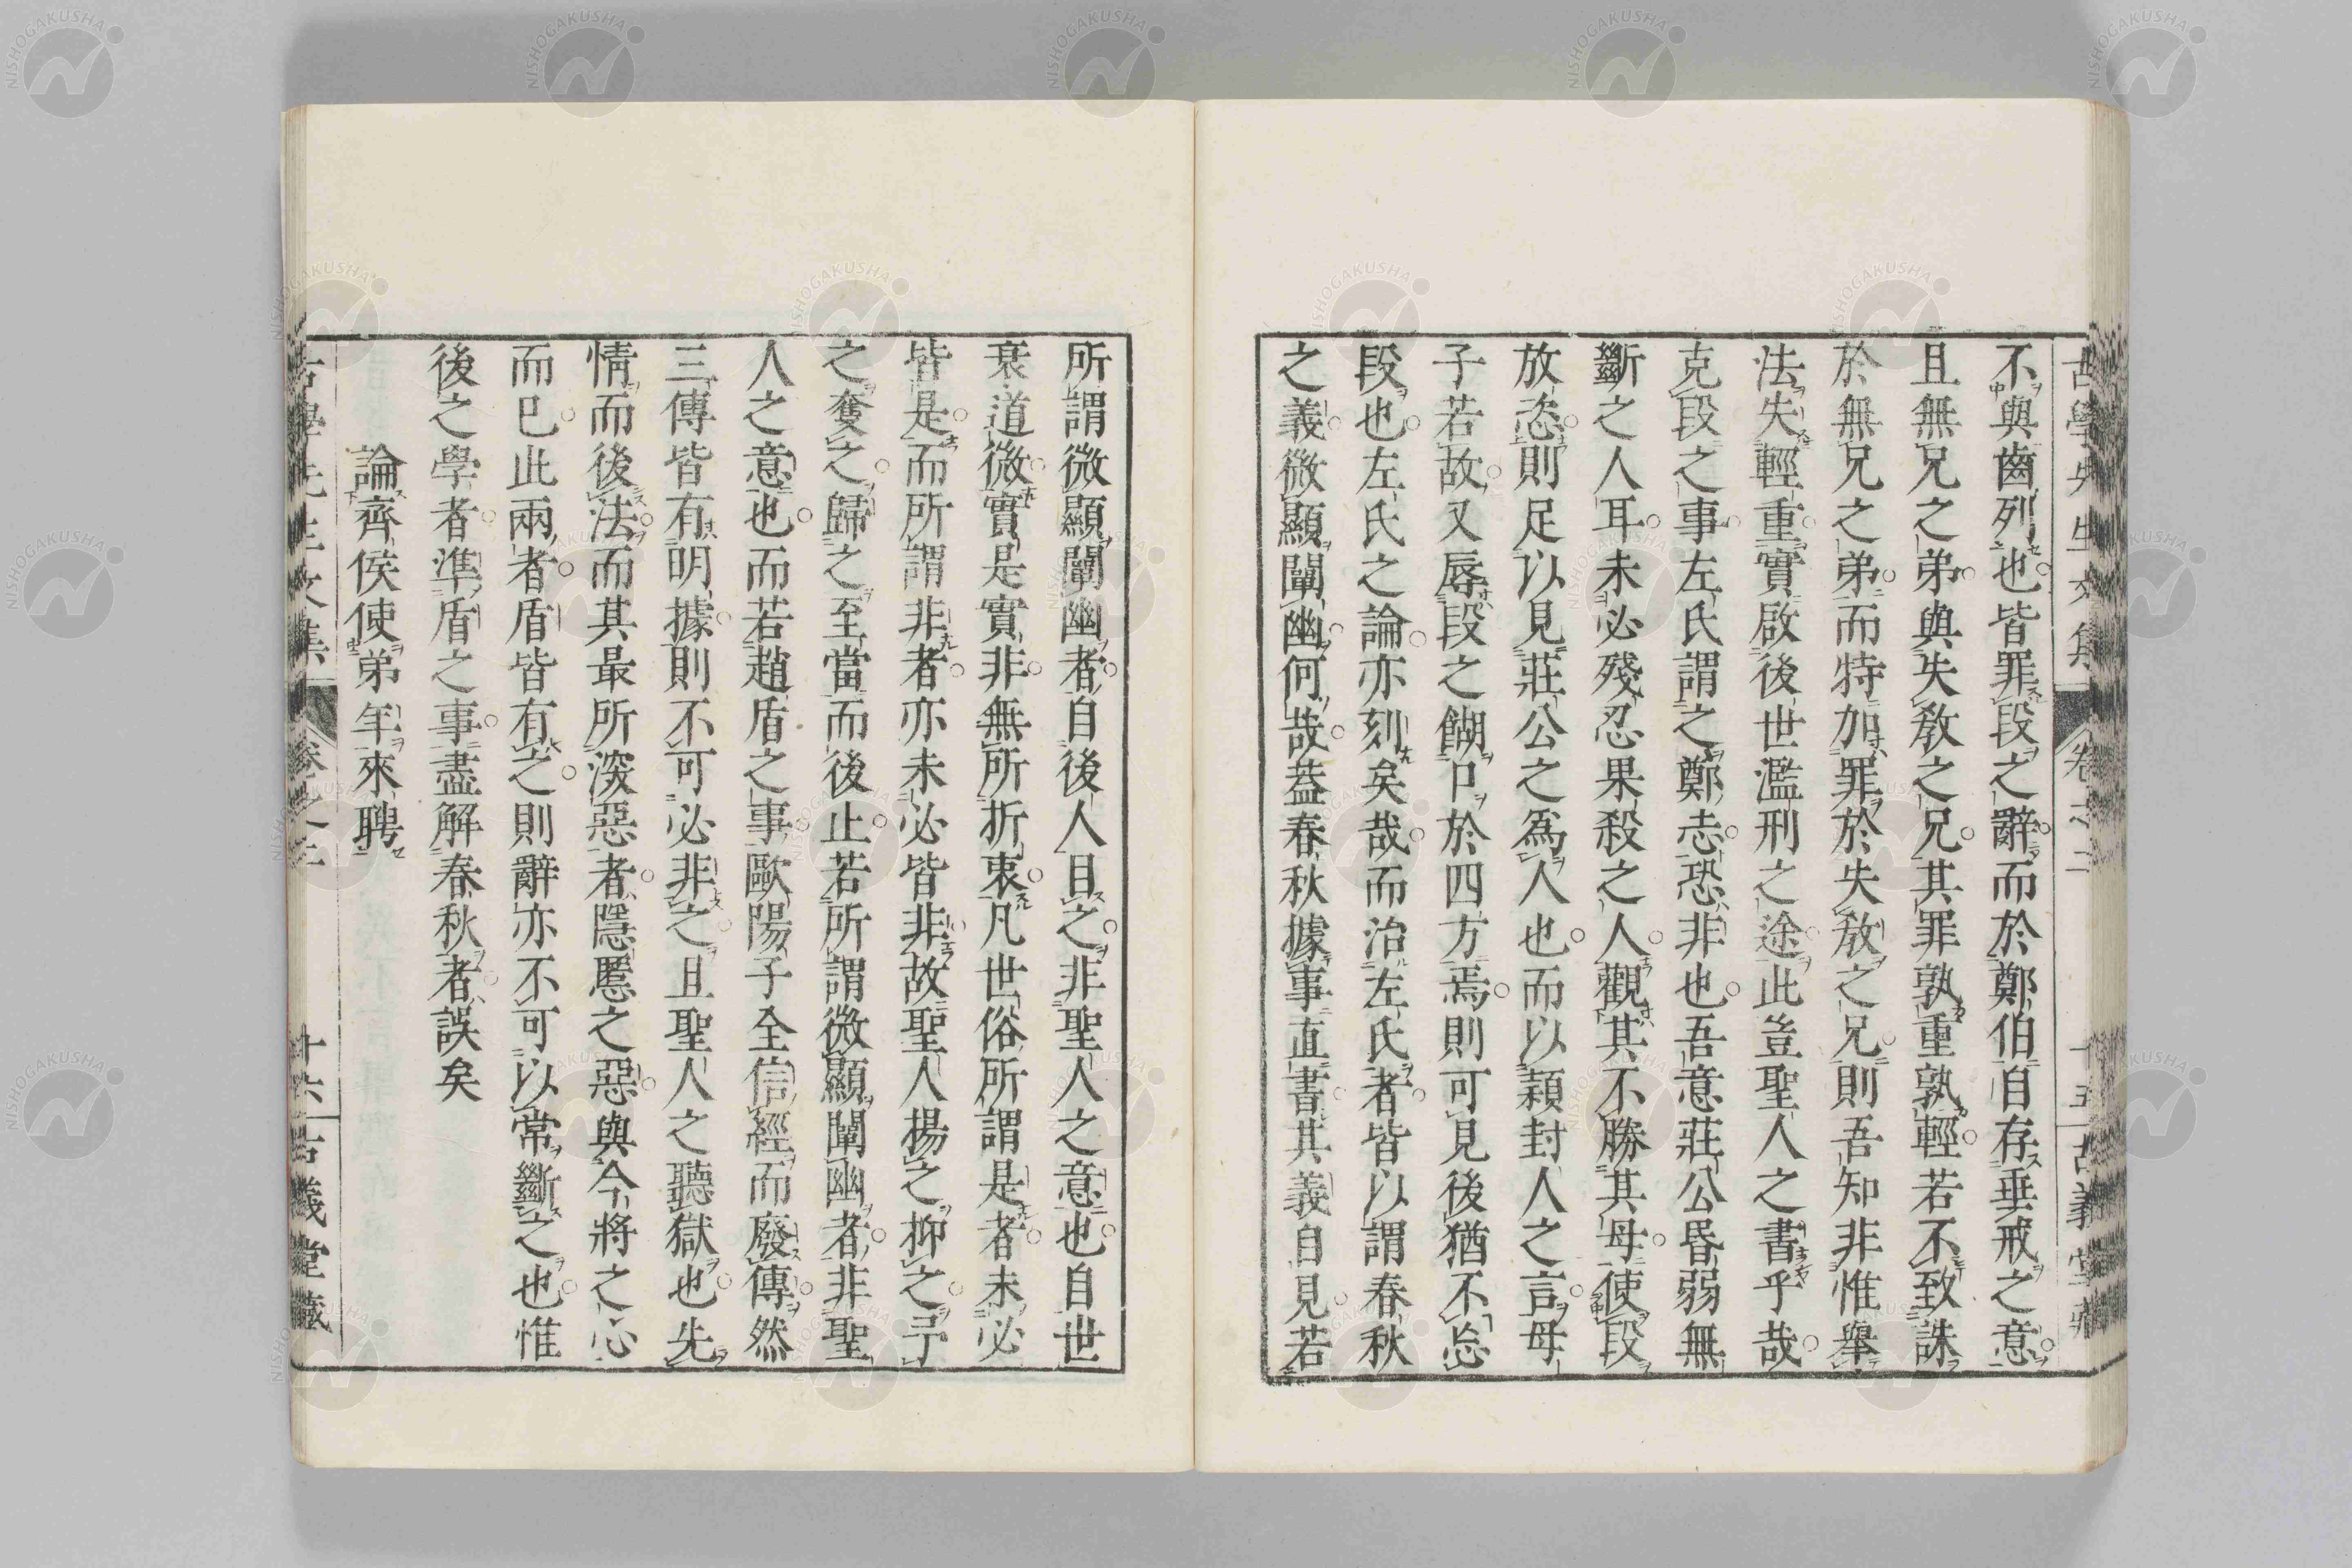 不與齒列也皆罪段之辭而於鄭伯自存垂戒之意
且無兄之弟與失教之兄其罪孰重孰輕若不致誅
於無兄之弟而特加罪於失教之兄則吾知非惟舉
法失輕重實啟後世濫刑之途此豈聖人之書乎哉
克段之事左氏謂之鄭志恐非也吾意莊公昏弱無
斷之人耳未必殘忍果殺之人觀其不勝其母使段
放恣則足以見莊公之爲人也而以穎封人之言母
子若故又辱段之餬口於四方焉則可見後猶不忘
段也左氏之論亦刻矣哉而治左氏者皆以謂春秋
之義微顯闡幽何哉蓋春秋據事直書其義自見若
所謂微顯闡幽者自後人曰之非聖人之意也自世
衰道微實是實非無所折衷凡世俗所謂是者未必
皆是而所謂非者亦未必皆非故聖人揚之抑之予
之奪之歸之至當而後止若所謂微顯闡幽者非聖
人之意也而若趙盾之事歐陽子全信經而廢傳然
三傳皆有明據則不可必非之且聖人之聽獄也先
情而後法而其最所深惡者隱慝之惡與今將之心
而已此兩者盾皆有之則辭亦不可以常斷之也惟
後之學者準盾之事盡解春秋者誤矣
論齊侯使弟年來聘
古學先生文集 卷之二 十六 古義堂藏